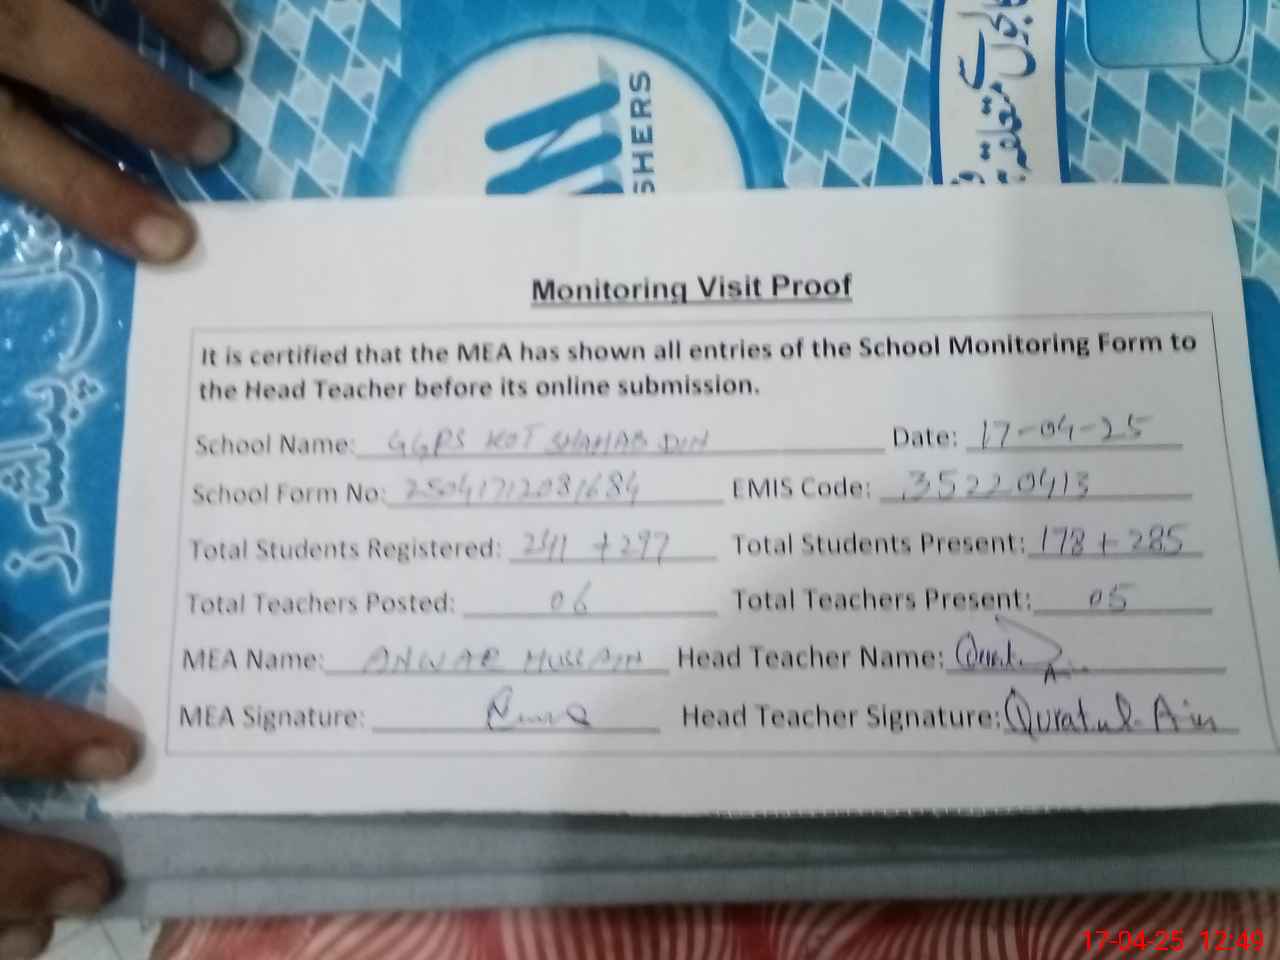 SHERS
پبلشرز
Monitoring Visit Proof
It is certified that the MEA has shown all entries of the School Monitoring Form to
the Head Teacher before its online submission.
School Name: GGPS KOT SHAHAB DIN Date: 17-04-25
School Form No: 25041712081684 EMIS Code: 35220413
Total Students Registered: 241 + 297 Total Students Present: 178 + 285
Total Teachers Posted: 06 Total Teachers Present: 05
MEA Name: ANWAR HUSSAIN Head Teacher Name:
MEA Signature: Head Teacher Signature: Quratul Ain
17-04-25 12:49